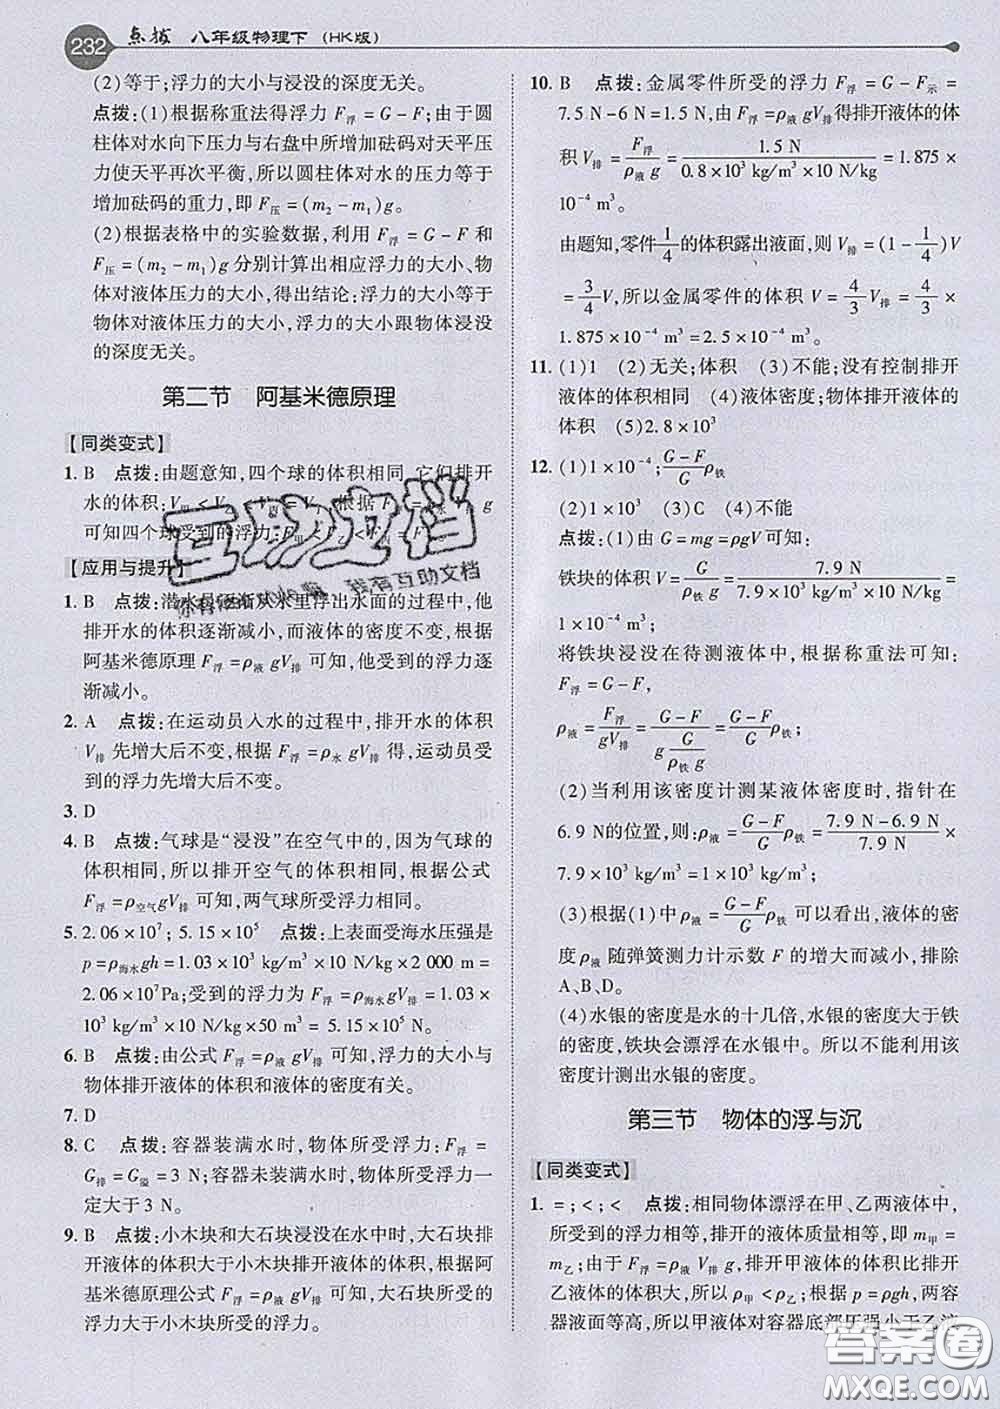 232 点拨 八年级物理下 (HK版)
(2)等于;浮力的大小与浸没的深度无关。
点拨:(1)根据称重法得浮力 F浮=G-F;由圆
柱体对水向下压力与右盘中所增加砝码对天平压
力使天平再次平衡,所以圆柱体对水的压力等于
增加砝码的重力,即 F压=(m₂-m₁)g。
(2)根据表格中的实验数据,利用 F浮=G-F 和
F压=(m₂-m₁)g 分别计算出相应浮力的大小、物
体对液体压力的大小,得出结论:浮力的大小等于
物体对液体压力的大小,浮力的大小跟物体浸没
的深度无关。
第二节 阿基米德原理
【同类变式】
1. B 点拨:由题意知,四个球的体积相同,它们排开
水的体积:
可知四个球受到的浮力:
【应用与提升】
1. B 点拨:潜水员逐渐从水里浮出水面的过程中,他
排开水的体积逐渐减小,而液体的密度不变,根据
阿基米德原理 F浮=ρ液 gV排 可知,他受到的浮力逐
渐减小。
2. A 点拨:在运动员入水的过程中,排开水的体积
V排 先增大后不变,根据 F浮=ρ水 gV排 得,运动员受
到的浮力先增大后不变。
3. D
4. B 点拨:气球是“浸没”在空气中的,因为气球的
体积相同,所以排开空气的体积相同,根据公式
F浮=ρ空气gV排 可知,两气球所受浮力相同。
5. 2.06×10⁷; 5.15×10⁵ 点拨:上表面受海水压强是
p=ρ海水gh=1.03×10³ kg/m³×10 N/kg×2 000 m=
2.06×10⁷Pa;受到的浮力为 F浮=ρ海水gV排=1.03×
10³ kg/m³×10 N/kg×50 m³=5.15×10⁵N。
6. B 点拨:由公式 F浮=ρ液 gV排 可知,浮力的大小与
物体排开液体的体积和液体的密度有关。
7. D
8. C 点拨:容器装满水时,物体所受浮力:F浮=
G排=G溢=3 N;容器未装满水时,物体所受浮力一
定大于 3 N。
9. B 点拨:小木块和大石块浸没在水中时,大石块排
开液体的体积大于小木块排开液体的体积,根据阿
基米德原理公式 F浮=ρ液 gV排 可知,大石块所受的
浮力大于小木块所受的浮力。
10. B 点拨:金属零件所受的浮力 F浮=G-F示=
7.5 N-6 N=1.5 N,由 F浮=ρ液 gV排得排开液体的体
积 V排=F浮/(ρ液 g)=1.5 N/(0.8×10³ kg/m³×10 N/kg)=1.875×
10⁻⁴ m³。
由题知,零件1/4的体积露出液面,则 V排=(1-1/4)V
=3/4V,所以金属零件的体积 V=4/3V排=4/3×
1.875×10⁻⁴ m³=2.5×10⁻⁴ m³。
11. (1)1 (2)无关;体积 (3)不能;没有控制排开
液体的体积相同 (4)液体密度;物体排开液体的
体积 (5)2.8×10³
12. (1)1×10⁻⁴;(G-F)/G ρ铁
(2)1×10³ (3)C (4)不能
点拨:(1)由 G=mg=ρgV 可知:
铁块的体积 V=G/(ρ铁 g)=7.9 N/(7.9×10³ kg/m³×10 N/kg)=
1×10⁻⁴ m³;
将铁块浸没在待测液体中,根据称重法可知:
F浮=G-F,
ρ液=F浮/(gV排)=(G-F)/(g G/(ρ铁 g))=(G-F)/(G/ρ铁)=(G-F)/G ρ铁;
(2)当利用该密度计测某液体密度时,指针在
6.9 N的位置,则:ρ液=(G-F)/G ρ铁=(7.9 N-6.9 N)/7.9 N×
7.9×10³ kg/m³=1×10³ kg/m³;
(3)根据(1)中 ρ液=(G-F)/G ρ铁 可以看出,液体的密
度 ρ液 随弹簧测力计示数 F 的增大而减小,排除
A、B、D。
(4)水银的密度是水的十几倍,水银的密度大于铁
的密度,铁块会漂浮在水银中。所以不能利用该
密度计测出水银的密度。
第三节 物体的浮与沉
【同类变式】
1. =;<;< 点拨:相同物体漂浮在甲、乙两液体中,
所受到的浮力相等,排开的液体质量相等,即 m甲=
m乙;由于 F浮=ρ液 V排 g,排开甲液体的体积比排开
乙液体的体积大,所以 ρ甲<ρ乙;根据 p=ρgh,两容
器液面等高,所以甲液体对容器底部压强小于乙液
互助文档
我有互助文档
答案圈
MXQE.COM